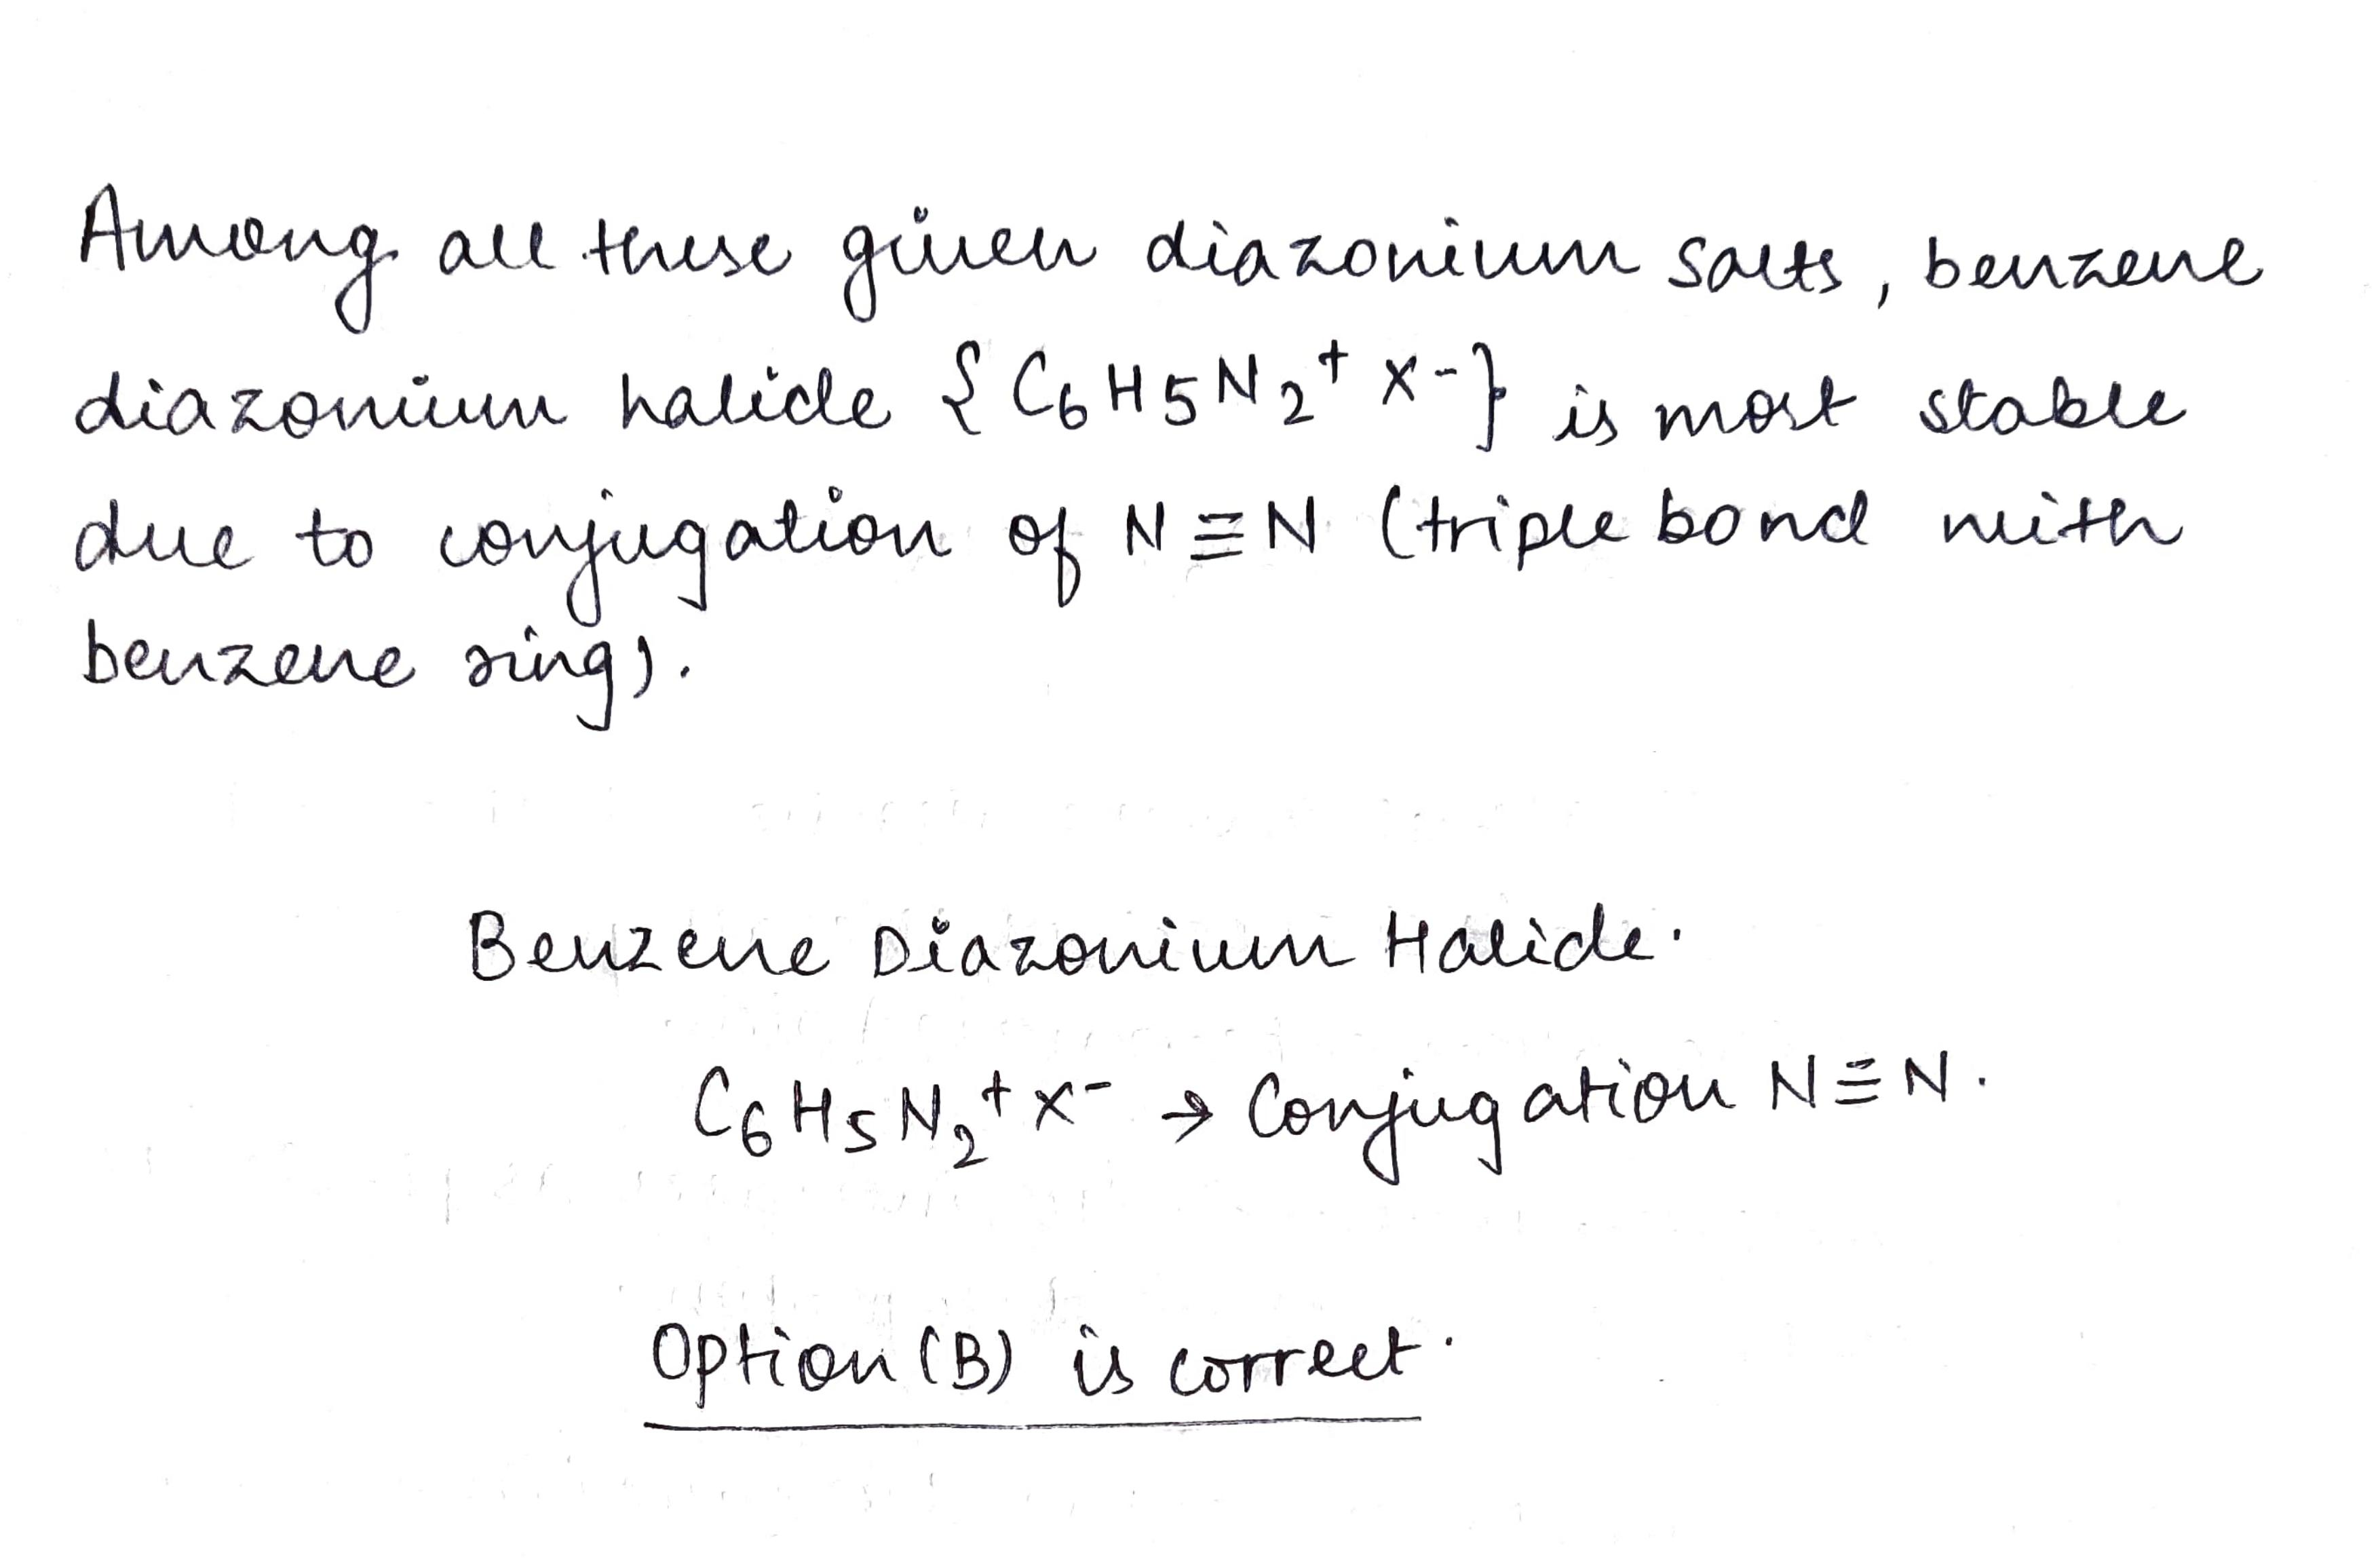 Among all these given diazonium salts, benzene
diazonium halide {C6H5N2+ X-} is most stable
due to conjugation of N≡N (triple bond with
benzene ring).
Benzene Diazonium Halide.
C6H5N2+X- → Conjugation N≡N.
Option (B) is correct.